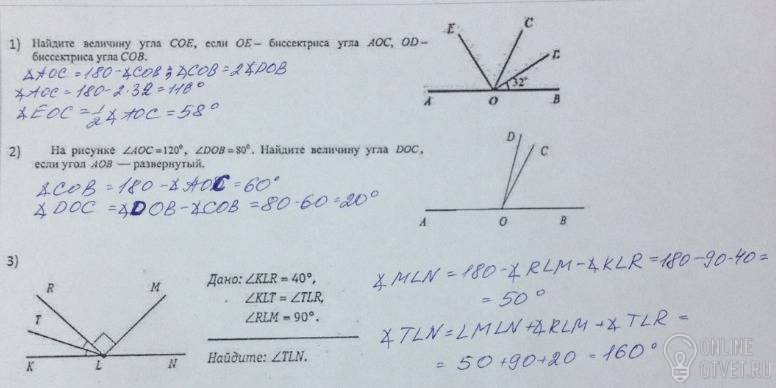 1) Найдите величину угла COE, если OE– биссектриса угла AOC, OD–
биссектриса угла COB.
∡AOC = 180-∡COB; ∡COB = 2∡DOB
∡AOC = 180-2·32 = 116°
∡EOC = 1/2 ∡AOC = 58°
E
C
D
32°
A
O
B
2) На рисунке ∠AOC=120°, ∠DOB=80°. Найдите величину угла DOC,
если угол AOB — развернутый.
∡COB = 180-∡AOC = 60°
∡DOC = ∡DOB-∡COB = 80-60 = 20°
D
C
A
O
B
3)
R
M
T
K
L
N
Дано: ∠KLR = 40°,
∠KLT = ∠TLR,
∠RLM = 90°.
Найдите: ∠TLN.
∡MLN = 180-∡RLM-∡KLR = 180-90-40 =
= 50°
∡TLN = LMLN+∡RLM+∡TLR =
= 50+90+20 = 160°
ONLINE
OTVET.RU